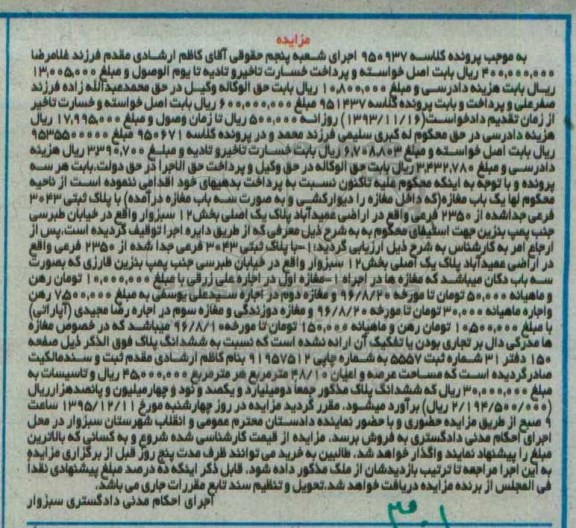 مزایده
به موجب پرونده کلاسه ۹۵۰۹۳۷ اجرای شعبه پنجم حقوقی آقای کاظم ارشادی مقدم فرزند غلامرضا
۴۰۰,۰۰۰,۰۰۰ ریال بابت اصل خواسته و پرداخت خسارت تاخیر و تادیه تا یوم الوصول و مبلغ ۱۳,۰۰۵,۰۰۰
ریال بابت هزینه دادرسی و مبلغ ۱۰,۸۰۰,۰۰۰ ریال بابت حق الوکاله وکیل در حق محمد عبدالله زاده فرزند
صفرعلی و پرداخت و بابت پرونده کلاسه ۹۵۱۴۳۷ مبلغ ۶۰۰,۰۰۰,۰۰۰ ریال بابت اصل خواسته و خسارت تاخیر
از زمان تقدیم دادخواست (۱۳۹۳/۱۱/۱۶) روزانه ۵۰۰,۰۰۰ ریال تا زمان وصول و مبلغ ۱۷,۹۹۵,۰۰۰ ریال
هزینه دادرسی در حق محکوم له کبری سلیمی فرزند محمد و در پرونده کلاسه ۹۵۰۶۷۱ مبلغ ۹۵۳۵۵۰۰۰۰
ریال بابت اصل خواسته و مبلغ ۶,۷۰۸۸۰۳ ریال بابت خسارت تاخیر و تادیه و مبلغ ۳۳۹۰,۷۰۰ ریال هزینه
دادرسی و مبلغ ۳,۴۳۲,۷۸۰ ریال بابت حق الوکاله در حق وکیل و پرداخت حق الاجرا در حق دولت.بابت هر سه
پرونده و با توجه به اینکه محکوم علیه تاکنون نسبت به پرداخت بدهیهای خود اقدامی ننموده است از ناحیه
محکوم لها یک باب مغازه(که داخل مغازه را دیوارکشی و به صورت سه باب مغازه درآمده) با پلاک ثبتی ۳۰۴۳
فرعی جداشده از ۲۳۵۰ فرعی واقع در اراضی عمیدآباد پلاک یک اصلی بخش۱۲ سبزوار واقع در خیابان طبرسی
جنب پمپ بنزین جهت استیفای محکوم به به شرح ذیل معرفی که از طریق دایره اجرا توقیف گردیده است.پس از
ارجاع امر به کارشناس به شرح ذیل ارزیابی گردید:۱-با پلاک ثبتی ۳۰۴۳ فرعی جدا شده از ۲۳۵۰ فرعی واقع
در اراضی عمیدآباد پلاک یک اصلی بخش۱۲ سبزوار واقع در خیابان طبرسی جنب پمپ بنزین فارزی که بصورت
سه باب دکان میباشد که مغازه ها در اجره ۱-مغازه اول در اجاره علی زرقی با مبلغ ۱۰,۰۰۰,۰۰۰ تومان رهن
و ماهیانه ۵۰,۰۰۰ تومان تا مورخه ۹۶/۸/۲۰ و مغازه دوم در اجاره سیدعلی یوسفی به مبلغ ۷۵۰۰,۰۰۰ رهن
واجاره ماهیانه ۳۰,۰۰۰ تومان تا مورخه ۹۶/۸/۲۰ و مغازه دوزندگی و مغازه سوم در اجاره رضا مجیدی (آپاراتی)
با مبلغ ۱۰,۵۰۰,۰۰۰ تومان رهن و ماهیانه ۱۵۰,۰۰۰ تومان تا مورخه ۹۶/۸/۱۰ میباشد که در خصوص مغازه
ها مدرکی دال بر تجاری بودن یا تفکیک آن ارائه نشده است که نسبت به ششدانگ پلاک فوق الذکر ذیل صفحه
۱۵۰ دفتر ۳۱ شماره ثبت ۵۵۵۷ به شماره چاپی ۹۱۹۵۷۵۱۲ بنام کاظم ارشادی مقدم ثبت و سندمالکیت
صادرگردیده است که مساحت عرصه و اعیان ۴۸/۱۰ مترمربع هر مترمربع ۴۵,۰۰۰,۰۰۰ ریال و تاسیسات به
مبلغ ۳۰,۰۰۰,۰۰۰ ریال که ششدانگ پلاک مذکور جمعا دومیلیارد و یکصد و نود و چهارمیلیون و پانصدهزارریال
(۲/۱۹۴/۵۰۰/۰۰۰ ریال) برآورد میشود. مقرر گردید مزایده در روز چهارشنبه مورخ ۱۳۹۵/۱۲/۱۱ ساعت
۹ صبح از طریق مزایده حضوری و با حضور نماینده دادستان محترم عمومی و انقلاب شهرستان سبزوار در محل
اجرای احکام مدنی دادگستری به فروش برسد. مزایده از قیمت کارشناسی شده شروع و به کسانی که بالاترین
مبلغ را پیشنهاد نمایند واگذار خواهد شد. طالبین به خرید می توانند ظرف مدت پنج روز قبل از برگزاری مزایده
به این اجرا مراجعه تا ترتیب بازدیدشان از ملک مذکور داده شود. قابل ذکر اینکه ده درصد مبلغ پیشنهادی نقدا
فی المجلس از برنده مزایده دریافت خواهد شد.تحویل و تنظیم سند تابع مقررات جاری می باشد.
اجرای احکام مدنی دادگستری سبزوار